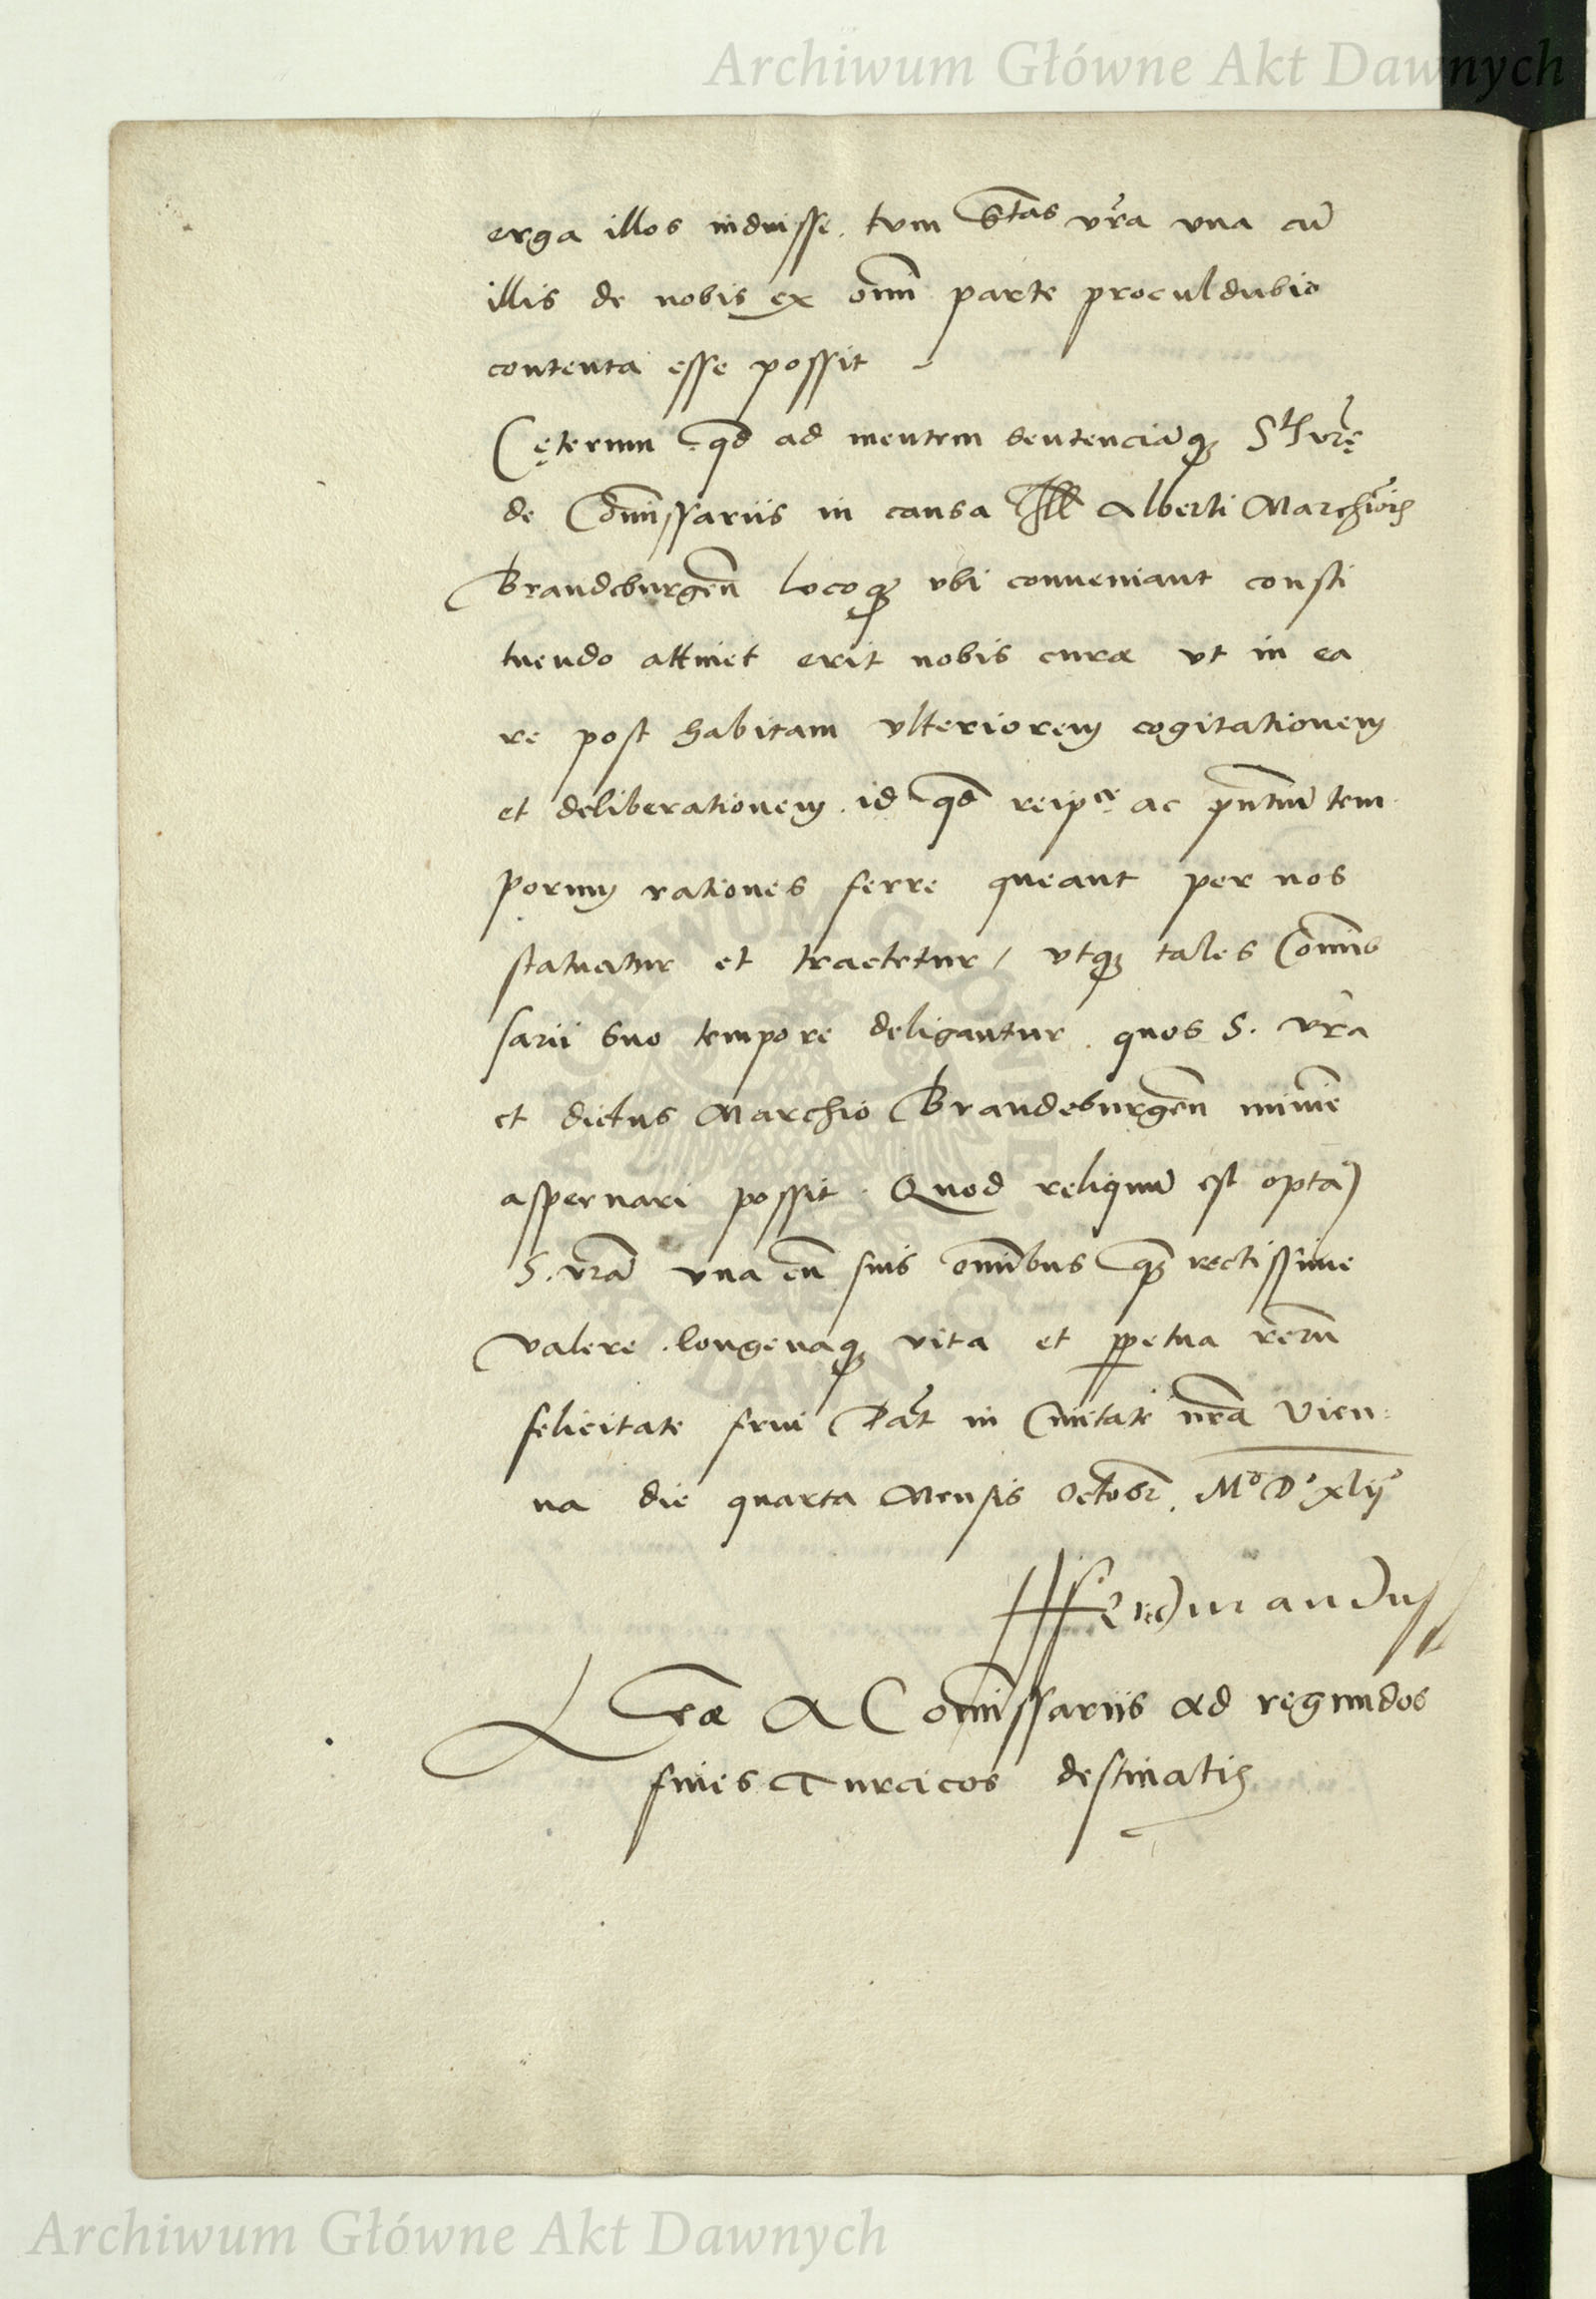 Archiwum Główne Akt Dawnych
erga illos induisse. tum S̃tas vr̃a vna cũ
illis de nobis ex om̃i parte proculdubio
contenta esse possit
Cęterum qd̃ ad mentem sentenciãq₃ Stis vr̃ę
de Com̃issariis in causa Ill Alberti Marchiõis
Brandeburgeñ locoq₃ vbi conueniant consti
tuendo attinet erit nobis curæ vt in ea
re post habitam vlteriorem cogitationem
et deliberationem. id qd̃ reipce ac pñtiũ tem
porum rationes ferre queant per nos
statuatur et tractetur / vtq₃ tales Com̃is
sarii suo tempore deligantur. quos S. vr̃a
et dictus Marchio Brandeburgeñ minime
aspernari possit. Quod reliquũ est optam̃
S. vrã vna cũ suis om̃ibus q̃₃ rectissime
valere. longeuaq₃ vita et ꝑpetua rerũ
felicitate frui Dat̃ in Ciuitate nr̃a Vien:
na die quarta Mensis Octobr̃. Mo Do xlijo
Ferdinandus
Lr̃æ A Com̃issariis ad regundos
fines Turcicos destinatis
ARCHIWUM GŁÓWNE AKT DAWNYCH
Archiwum Główne Akt Dawnych